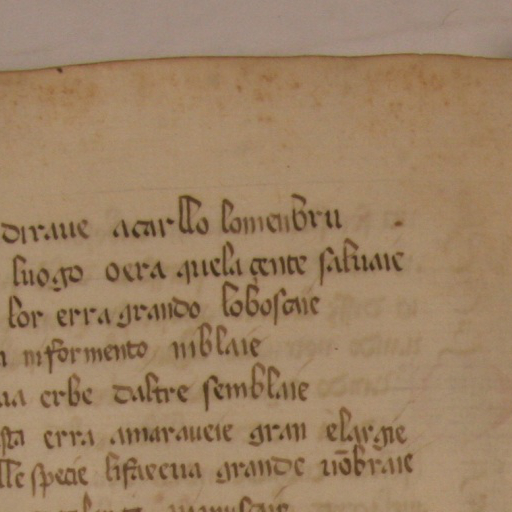 diraue acarllo lomenbru
luogo oera quela çente saluaie
lor erra grando loboscaie
n informento niblaie
ua erbe daltre semblaie
sta erra amaraueie gran elargie
lle specie lifaceua grande uōbraie